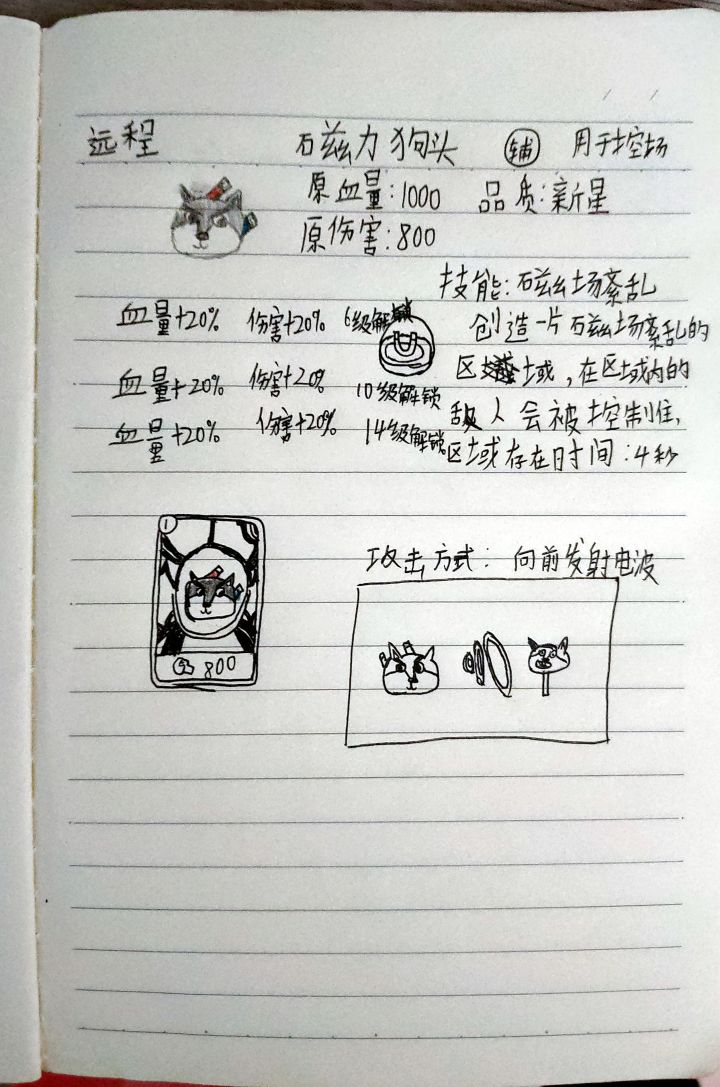 远程 磁力狗头 辅 用于控场
原血量:1000 品质:新星
原伤害:800
技能:磁场紊乱
血量+20% 伤害+20% 6级解锁
创造一片磁场紊乱的
区域,在区域内的
血量+20% 伤害+20% 10级解锁
敌人会被控制住,
血量+20% 伤害+20% 14级解锁
区域存在时间:4秒
1
攻击方式: 向前发射电波
800